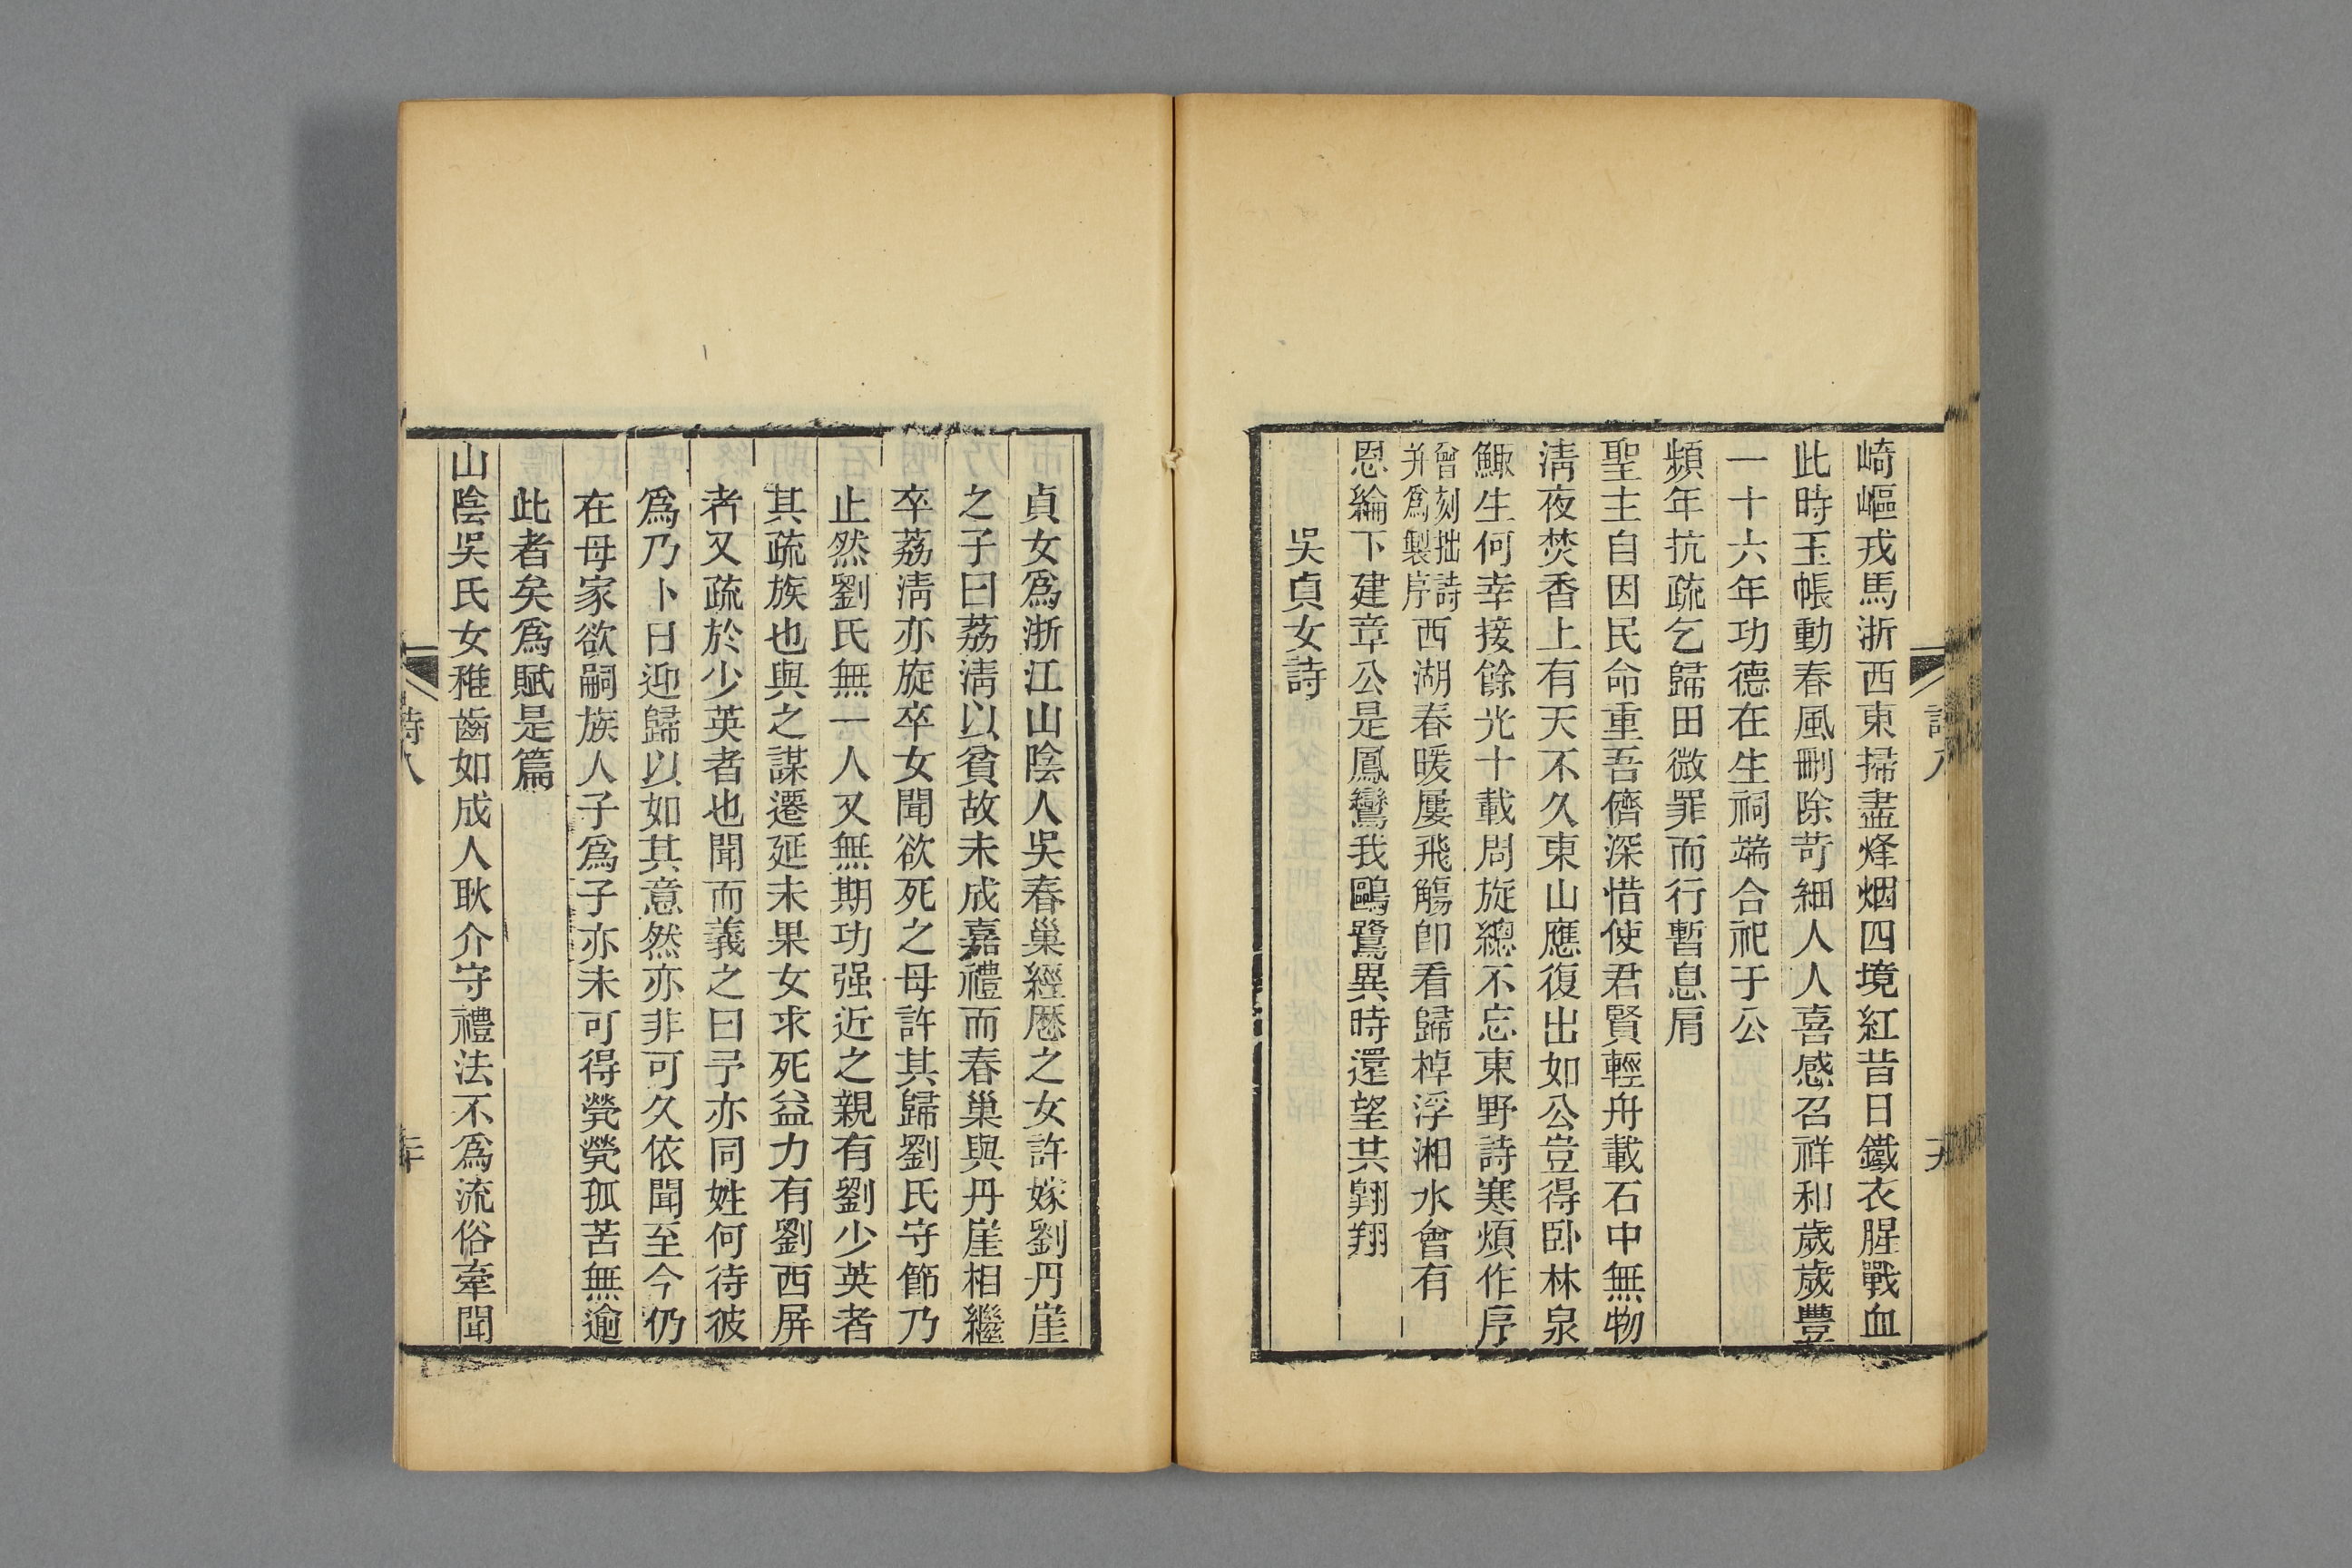 崎嶇戎馬浙西東掃盡烽烟四境紅昔日鐵衣腥戰血
此時玉帳動春風刪除苛細人人喜感召祥和歲歲豐
一十六年功德在生祠端合祀于公
頻年抗疏乞歸田微罪而行暫息肩
聖主自因民命重吾儕深惜使君賢輕舟載石中無物
淸夜焚香上有天不久東山應復出如公豈得卧林泉
鯫生何幸接餘光十載周旋總不忘東野詩寒煩作序
曾刻拙詩
并爲製序
西湖春暖屢飛觴卽看歸棹浮湘水會有
恩綸下建章公是鳳鸞我鷗鷺異時還望共翺翔
吳貞女詩
貞女爲浙江山陰人吳春巢經歷之女許嫁劉丹崖
之子曰荔淸以貧故未成嘉禮而春巢與丹崖相繼
卒荔淸亦旋卒女聞欲死之母許其歸劉氏守節乃
止然劉氏無一人又無期功强近之親有劉少英者
其疏族也與之謀遷延未果女求死益力有劉西屏
者又疏於少英者也聞而義之曰予亦同姓何待彼
爲乃卜日迎歸以如其意然亦非可久依聞至今仍
在母家欲嗣族人子爲子亦未可得煢煢孤苦無逾
此者矣爲賦是篇
山陰吳氏女稚齒如成人耿介守禮法不爲流俗牽聞
詩八